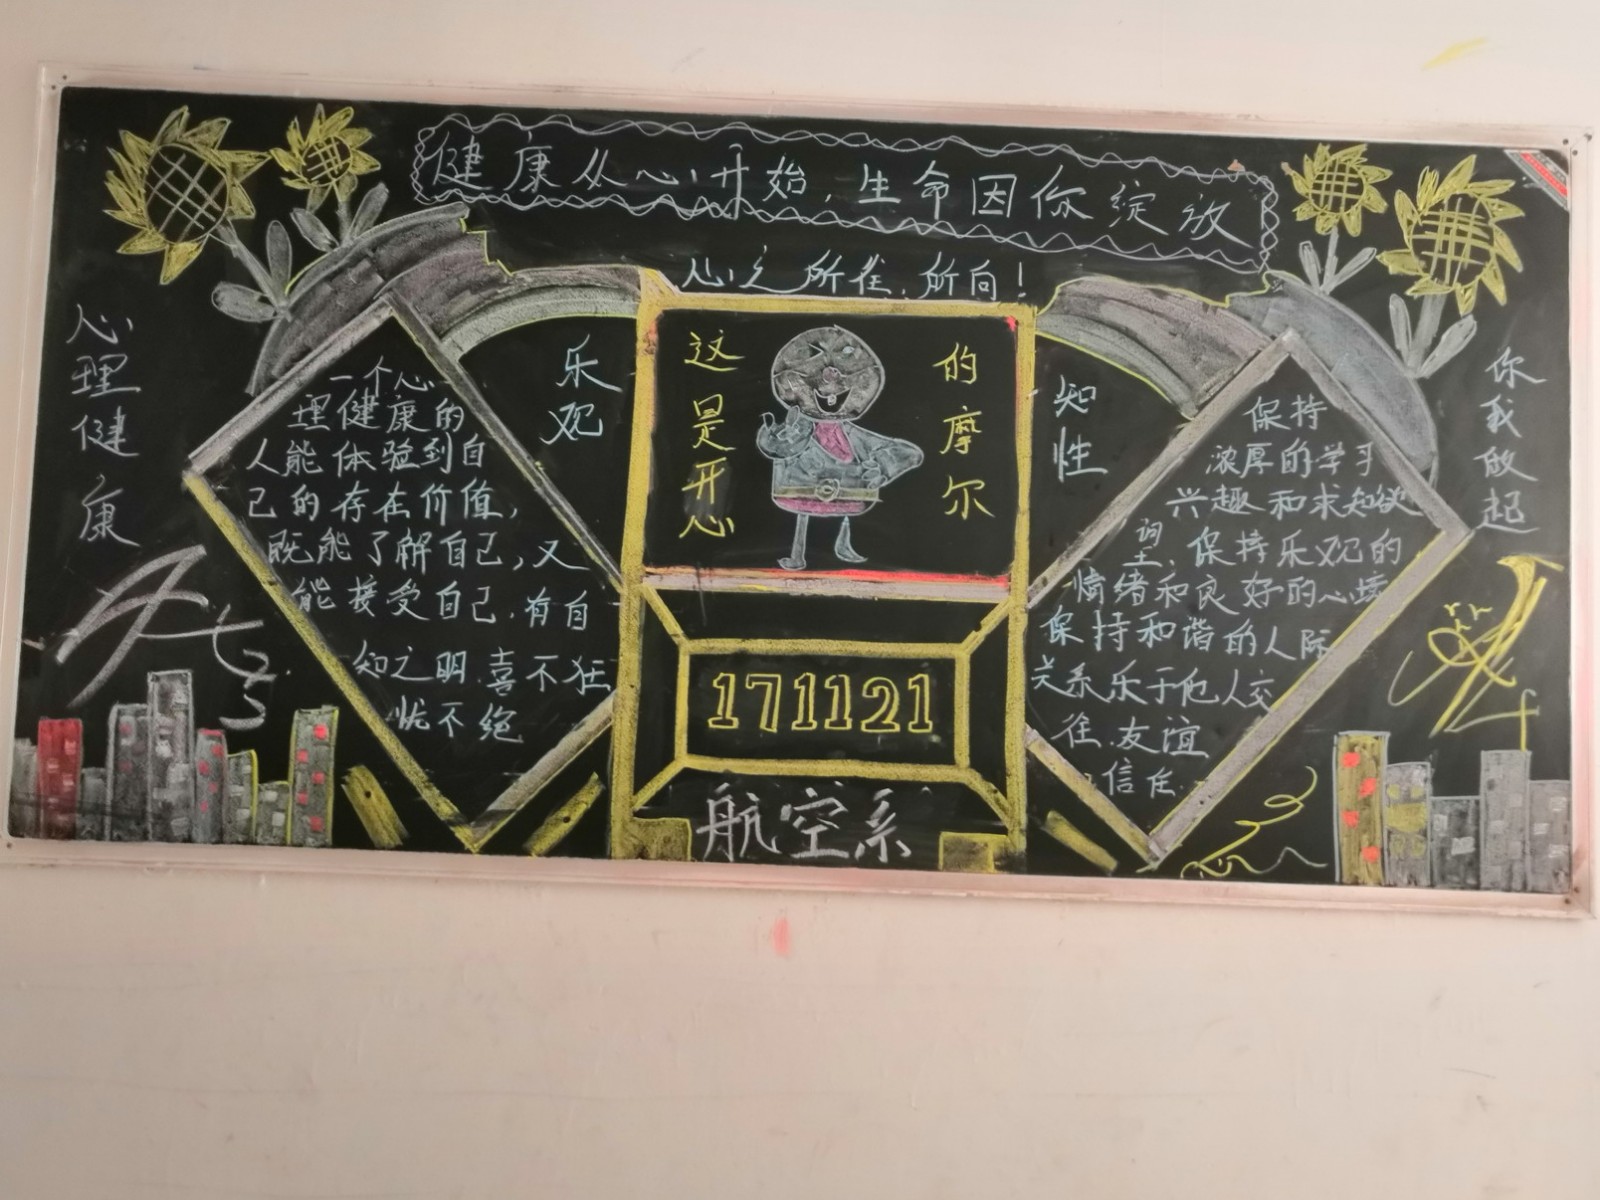 健康从心开始，生命因你绽放
心之所往，所向！
心理健康
一个心
理健康的
人能体验到自
己的存在价值，
既能了解自己，又
能接受自己，有自
知之明，喜不狂
忧不绝
乐观
这是开心
的摩尔
171121
航空系
知性
保持
浓厚的学习
兴趣和求知欲
保持乐观的
情绪和良好的心境
保持和谐的人际
关系乐于他人交
往，友谊
信任
你我做起